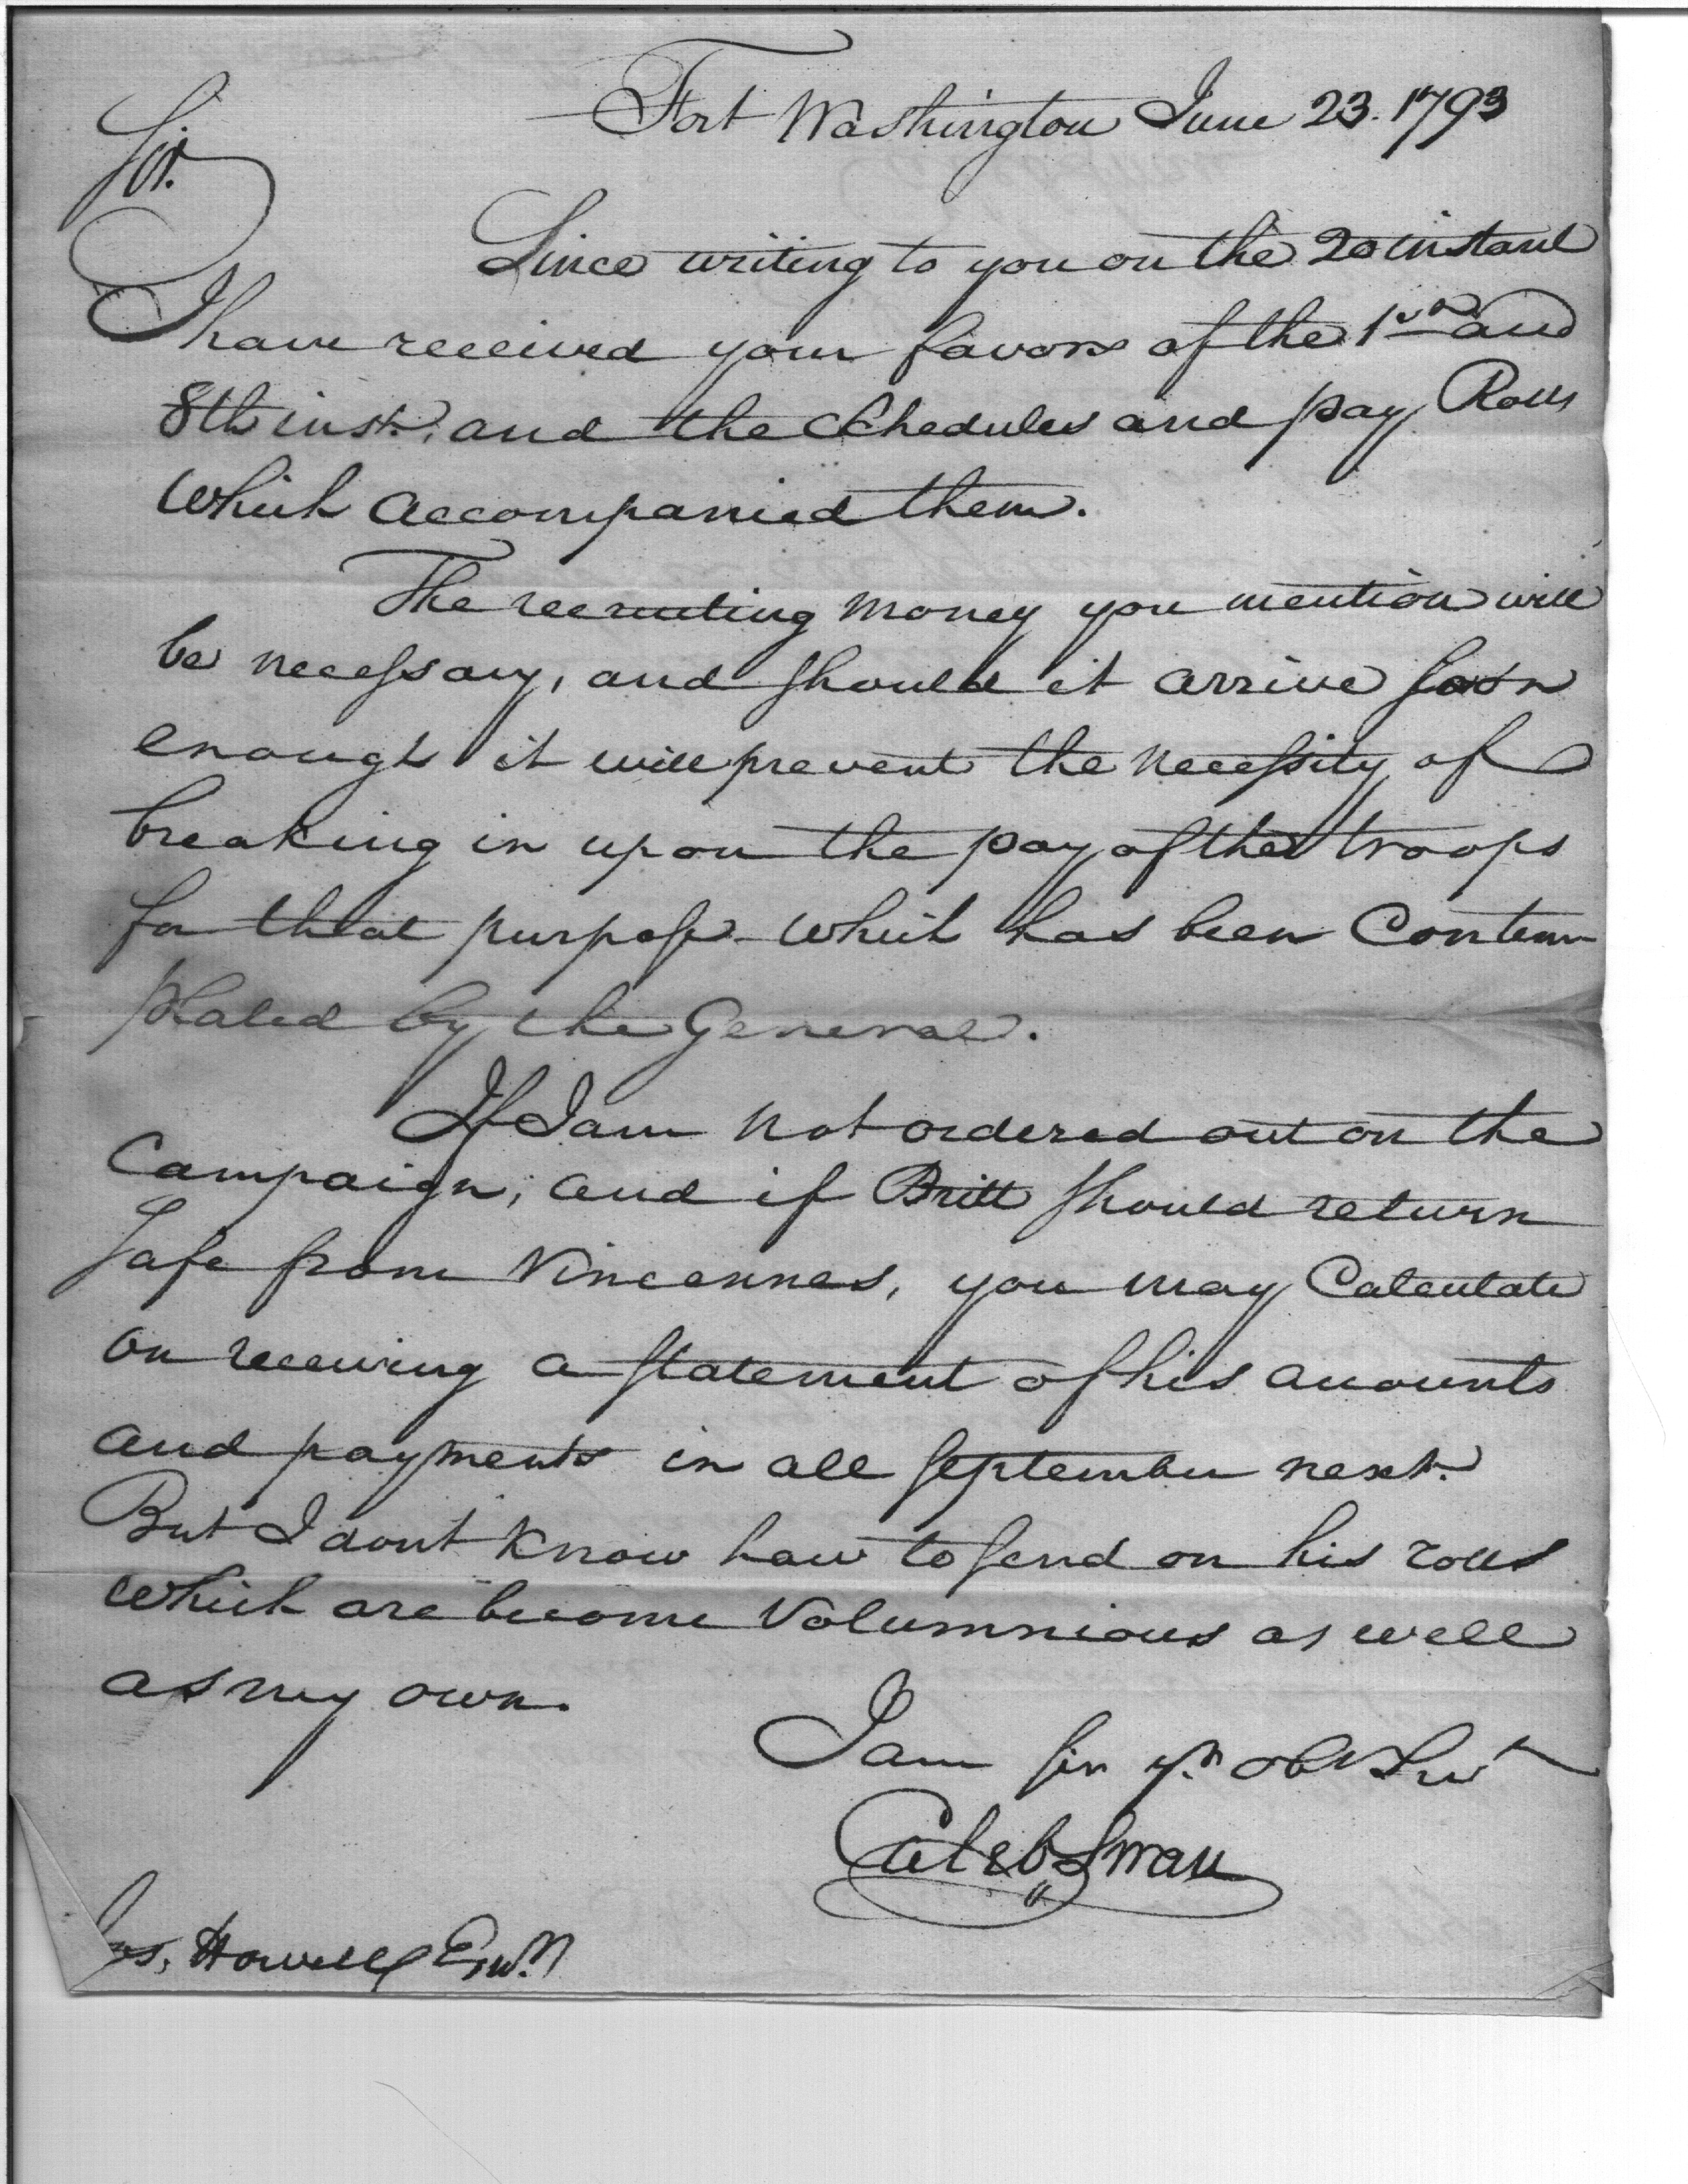 Fort Washington June 23. 1793
Sir.
Since writing to you on the 20 instant
I have received your favors of the 1st and
8th inst. and the Schedules and pay Rolls
which accompanied them.
The recruiting money you mention will
be necessary, and should it arrive soon
enough it will prevent the necessity of
breaking in upon the pay of the troops
for that purpose which has been Contem
plated by the General.
If I am not ordered out on the
Campaign, and if Britt should return
Safe from Vincennes, you may Calculate
on receiving a statement of his accounts
and payments in all September next.
But I dont know how to send on his rolls
which are become Volumnious as well
as my own.
I am sir yr. obt Svt
Caleb Swan
Jos. Howell Esqr.